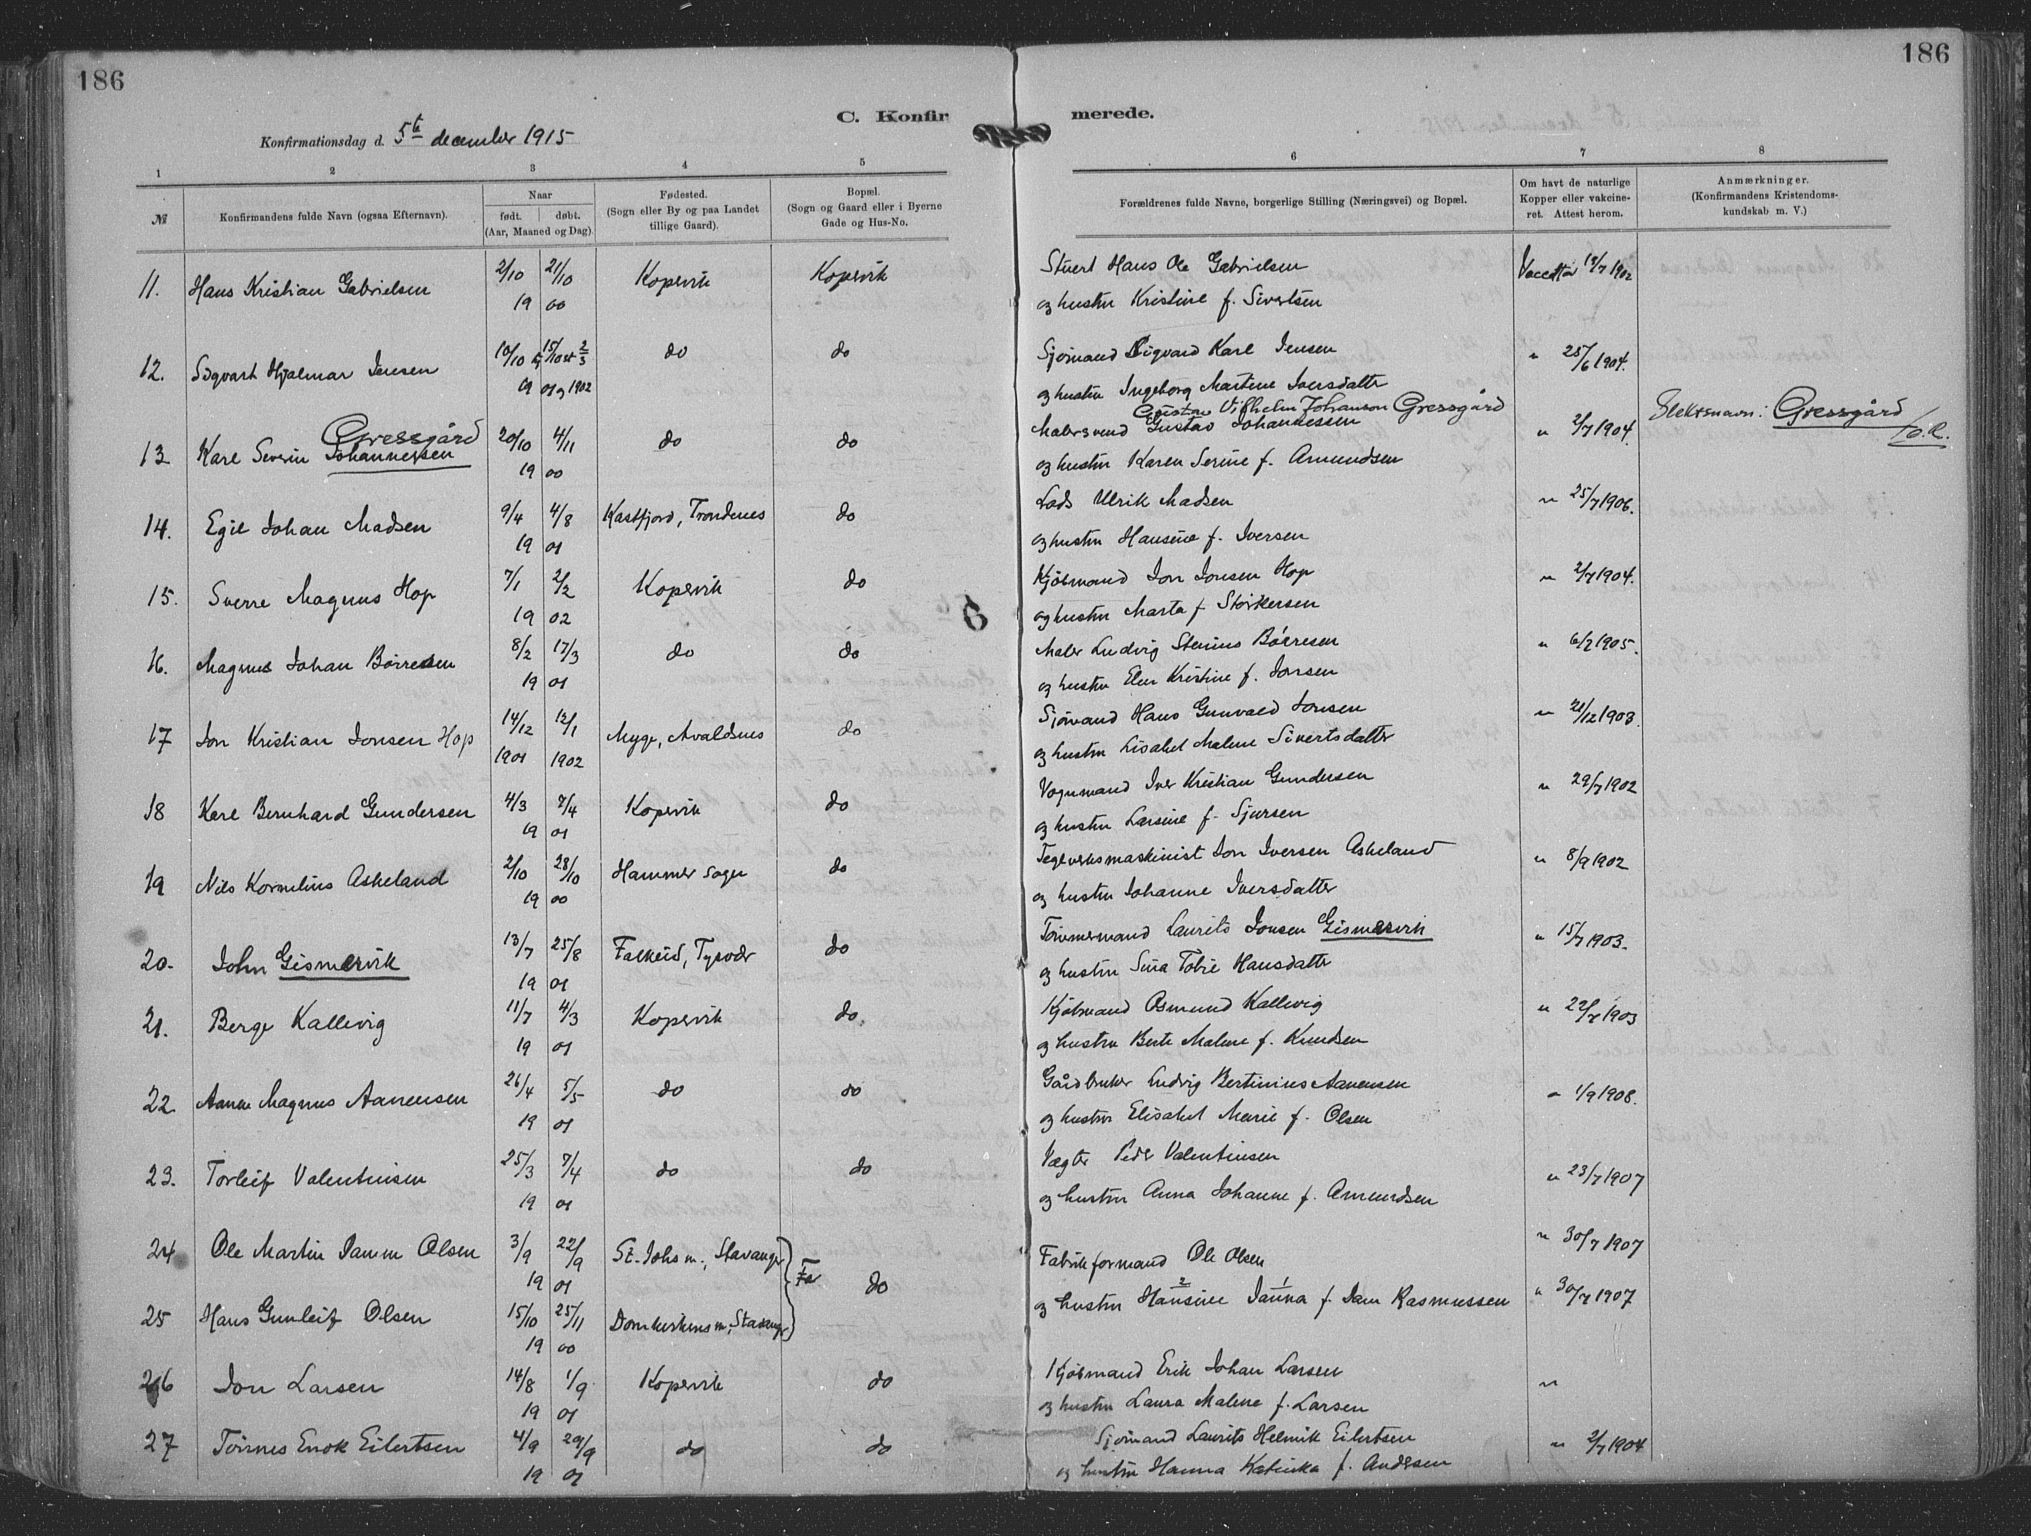 186
186
C. Konfirmerede.
Konfirmationsdag d. 5te december 1915
1 2 3 4 5 6 7 8
№ Konfirmandens fulde Navn (ogsaa Efternavn). Naar født. døbt. (Aar, Maaned og Dag) Fødested. (Sogn eller By og paa Landet tillige Gaard). Bopæl. (Sogn og Gaard eller i Byerne Gade og Hus-No. Forældrenes fulde Navne, borgerlige Stilling (Næringsvei) og Bopæl. Om havt de naturlige Kopper eller vakcineret. Attest herom. Anmærkninger. (Konfirmandens Kristendomskundskab m. V.)
11. Hans Kristian Gabrielsen 2/10 21/10 Kopervik Kopervik Stuert Hans Ole Gabrielsen
19 00 og hustru Kristine f. Sivertsen
12. Sigvart Hjalmar Jensen 10/10 15/10 st 2/3 do do Sjømand Sigvard Karl Jensen " 25/6 1904.
19 01 og 1902 og hustru Ingeborg Martine Iversdatter
Gressgård Gustav Vilhelm Johanson Gressgård
13 Karl Severin Johannessen 20/10 4/11 do do Malersvend Gustav Johannessen " 2/7 1904. Slektsnavn: Gressgård
19 00 og hustru Karen Serine f. Amundsen
14. Egil Johan Madsen 9/4 4/8 Kastfjord, Trondenes do Lods Ulrik Madsen " 25/7 1906.
19 01 og hustru Hansine f. Iversen
15. Sverre Magnus Hop 7/1 2/2 Kopervik do Kjøbmand Jon Jonsen Hop " 2/7 1904.
19 02 og hustru Marta f. Størkersen
16. Magnus Johan Børresen 8/2 17/3 do do Maler Ludvig Stenius Børresen " 6/2 1905.
19 01 og hustru Elen Kristine f. Jonsen
17 Jon Kristian Jonsen Hop 14/12 12/1 Myge, Avaldsnes do Sjømand Hans Gunvald Jonsen " 21/12 1903.
1901 1902 og hustru Lisabet Malene Sivertsdatter
18 Karl Bernhard Gundersen 4/3 7/4 Kopervik do Vognmand Iver Kristian Gundersen " 29/7 1902
19 01 og hustru Larsine f. Sjursen
19 Nils Kornelius Askeland 2/10 28/10 Hammer sogn do Teglverksmaskinist Jon Iversen Askeland " 8/9 1902
19 00 og hustru Johanne Iversdatter
20. John Gismervik 13/7 25/8 Falkeid, Tysvær do Tømmermand Laurits Jonsen Gismervik " 15/7 1903.
19 01 og hustru Sina Tobie Hansdatter
21. Berge Kallevig 11/7 4/3 Kopervik do. Kjøbmand Osmund Kallevig " 22/7 1903
19 01 og hustru Berte Malene f. Knudsen
22. Aanen Magnus Aanensen 26/4 5/5 do do Gårdbruker Ludvig Bertinius Aanensen " 1/9 1908.
19 01 og hustru Elisabet Marie f. Olsen
23. Torleif Valentinsen 25/3 7/4 do do Vægter Peder Valentinsen " 23/7 1907
19 01 og hustru Anna Johanne f. Amundsen
24 Ole Martin Damm Olsen 3/9 22/9 St. Johs m., Stavanger do Fabrikformand Ole Olsen " 30/7 1907
19 01
25 Hans Gunleif Olsen 15/10 25/11 Domkirkens m., Stavanger og hustru Hansine Janna f. Dam Rasmussen " 30/7 1907
19 00
26 Jon Larsen 14/8 1/9 Kopervik do Kjøbmand Erik Johan Larsen "
19 01 og hustru Laura Malene f. Larsen
27 Tønnes Enok Eilertsen 4/9 29/9 do do Sjømand Laurits Helmik Eilertsen " 2/7 1904
19 01 og hustru Hanna Katinka f. Andersen